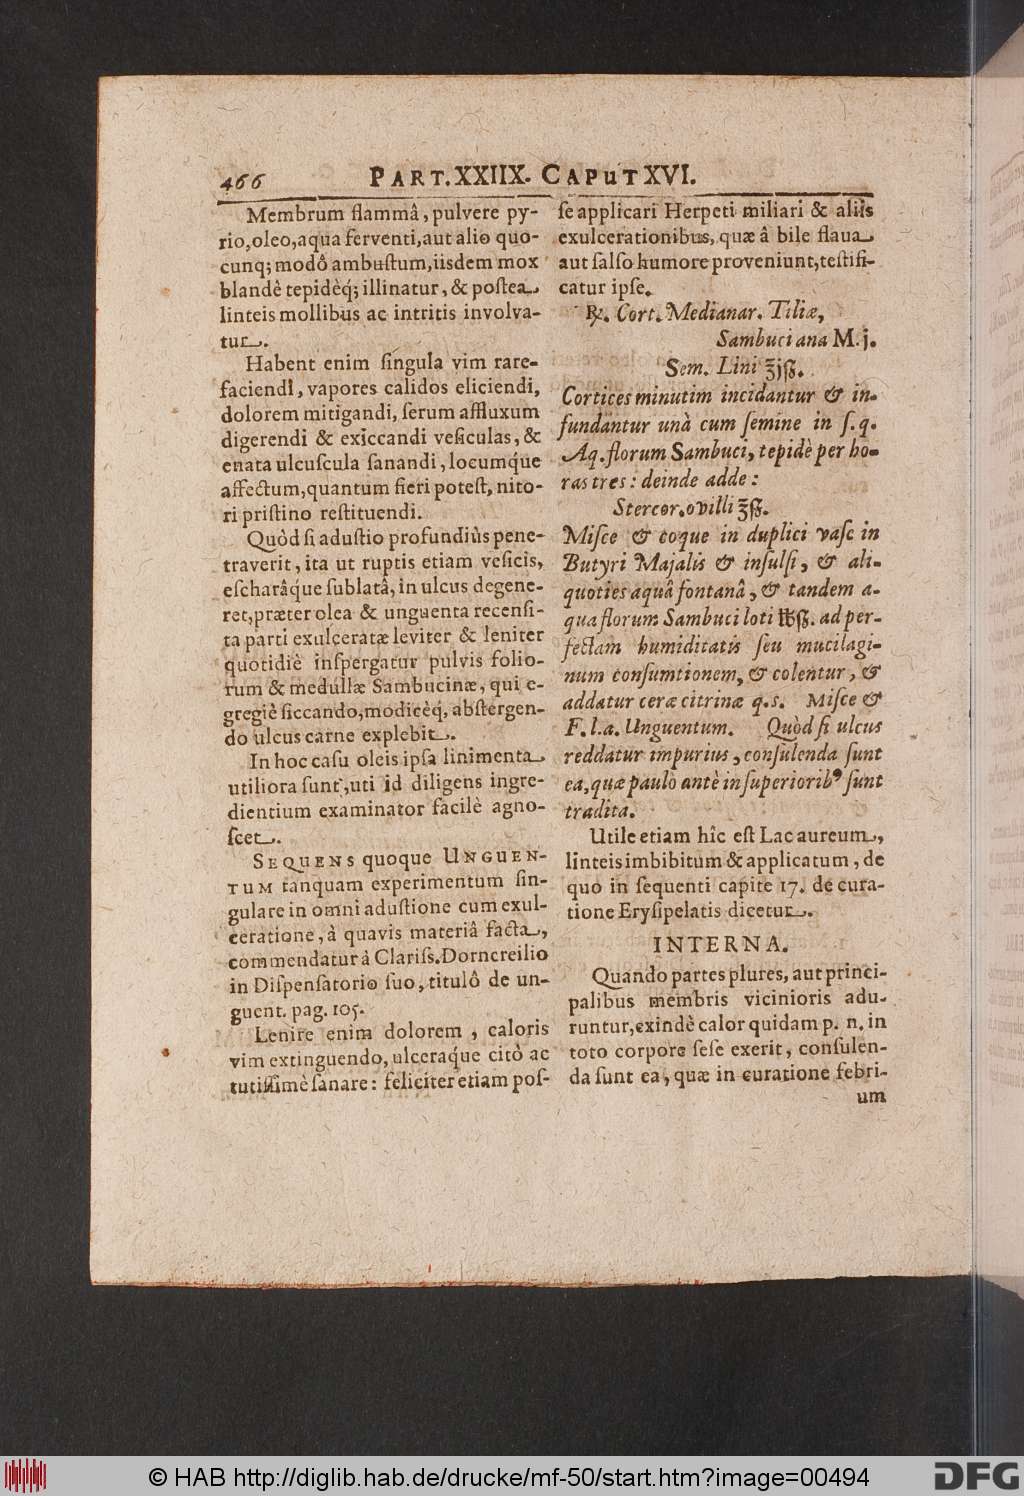 466 PART. XXIIX. CAPUT XVI.
Membrum flammâ, pulvere py-
rio, oleo, aqua ferventi, aut alio quo-
cunq; modô ambuſtum, iisdem mox
blandè tepidèq́; illinatur, & poſtea
linteis mollibus ac intritis involva-
tur.
Habent enim ſingula vim rare-
faciendi, vapores calidos eliciendi,
dolorem mitigandi, ſerum affluxum
digerendi & exiccandi veſiculas, &
enata ulcuſcula ſanandi, locumq́ue
affectum, quantum fieri poteſt, nito-
ri priſtino reſtituendi.
Quòd ſi aduſtio profundiùs pene-
traverit, ita ut ruptis etiam veſicis,
eſcharâq́ue ſublatâ, in ulcus degene-
ret, præter olea & unguenta recenſi-
ta parti exulceratæ leviter & leniter
quotidiè inſpergatur pulvis folio-
rum & medullæ Sambucinæ, qui e-
gregiè ſiccando, modicèq́, abſtergen-
do ulcus carne explebit.
In hoc caſu oleis ipſa linimenta
utiliora ſunt, uti id diligens ingre-
dientium examinator facilè agno-
ſcet.
SEQUENS quoque UNGUEN-
TUM tanquam experimentum ſin-
gulare in omni aduſtione cum exul-
ceratione, à quavis materiâ facta,
commendatur à Clariſs. Dorncreilio
in Diſpenſatorio ſuo, titulô de un-
guent. pag. 105.
Lenire enim dolorem, caloris
vim extinguendo, ulceraq́ue citò ac
tutiſſimè ſanare: feliciter etiam poſ-
ſe applicari Herpeti miliari & aliis
exulcerationibus, quæ â bile flaua
aut ſalſo humore proveniunt, teſtifi-
catur ipſe.
℞. Cort. Medianar. Tiliæ,
Sambuci ana M. j.
Sem. Lini ʒjß.
Cortices minutim incidantur & in-
fundantur unà cum ſemine in ſ. q.
Aq. florum Sambuci, tepidè per ho-
ras tres: deinde adde:
Stercor. ovilli ʒß.
Miſce & coque in duplici vaſe in
Butyri Majalis & inſulſi, & ali-
quoties aquâ fontanâ, & tandem a-
qua florum Sambuci loti ℔ß. ad per-
fectam humiditatis ſeu mucilagi-
num conſumtionem, & colentur, &
addatur ceræ citrinæ q. s. Miſce &
F. l. a. Unguentum. Quòd ſi ulcus
reddatur impurius, conſulenda ſunt
ea, quæ paulò antè in ſuperiorib⁹ ſunt
tradita.
Utile etiam hîc eſt Lac aureum,
linteis imbibitum & applicatum, de
quo in ſequenti capite 17. de cura-
tione Eryſipelatis dicetur.
INTERNA.
Quando partes plures, aut princi-
palibus membris vicinioris adu-
runtur, exindè calor quidam p. n. in
toto corpore ſeſe exerit, conſulen-
da ſunt ea, quæ in curatione febri-
um
© HAB http://diglib.hab.de/drucke/mf-50/start.htm?image=00494
DFG